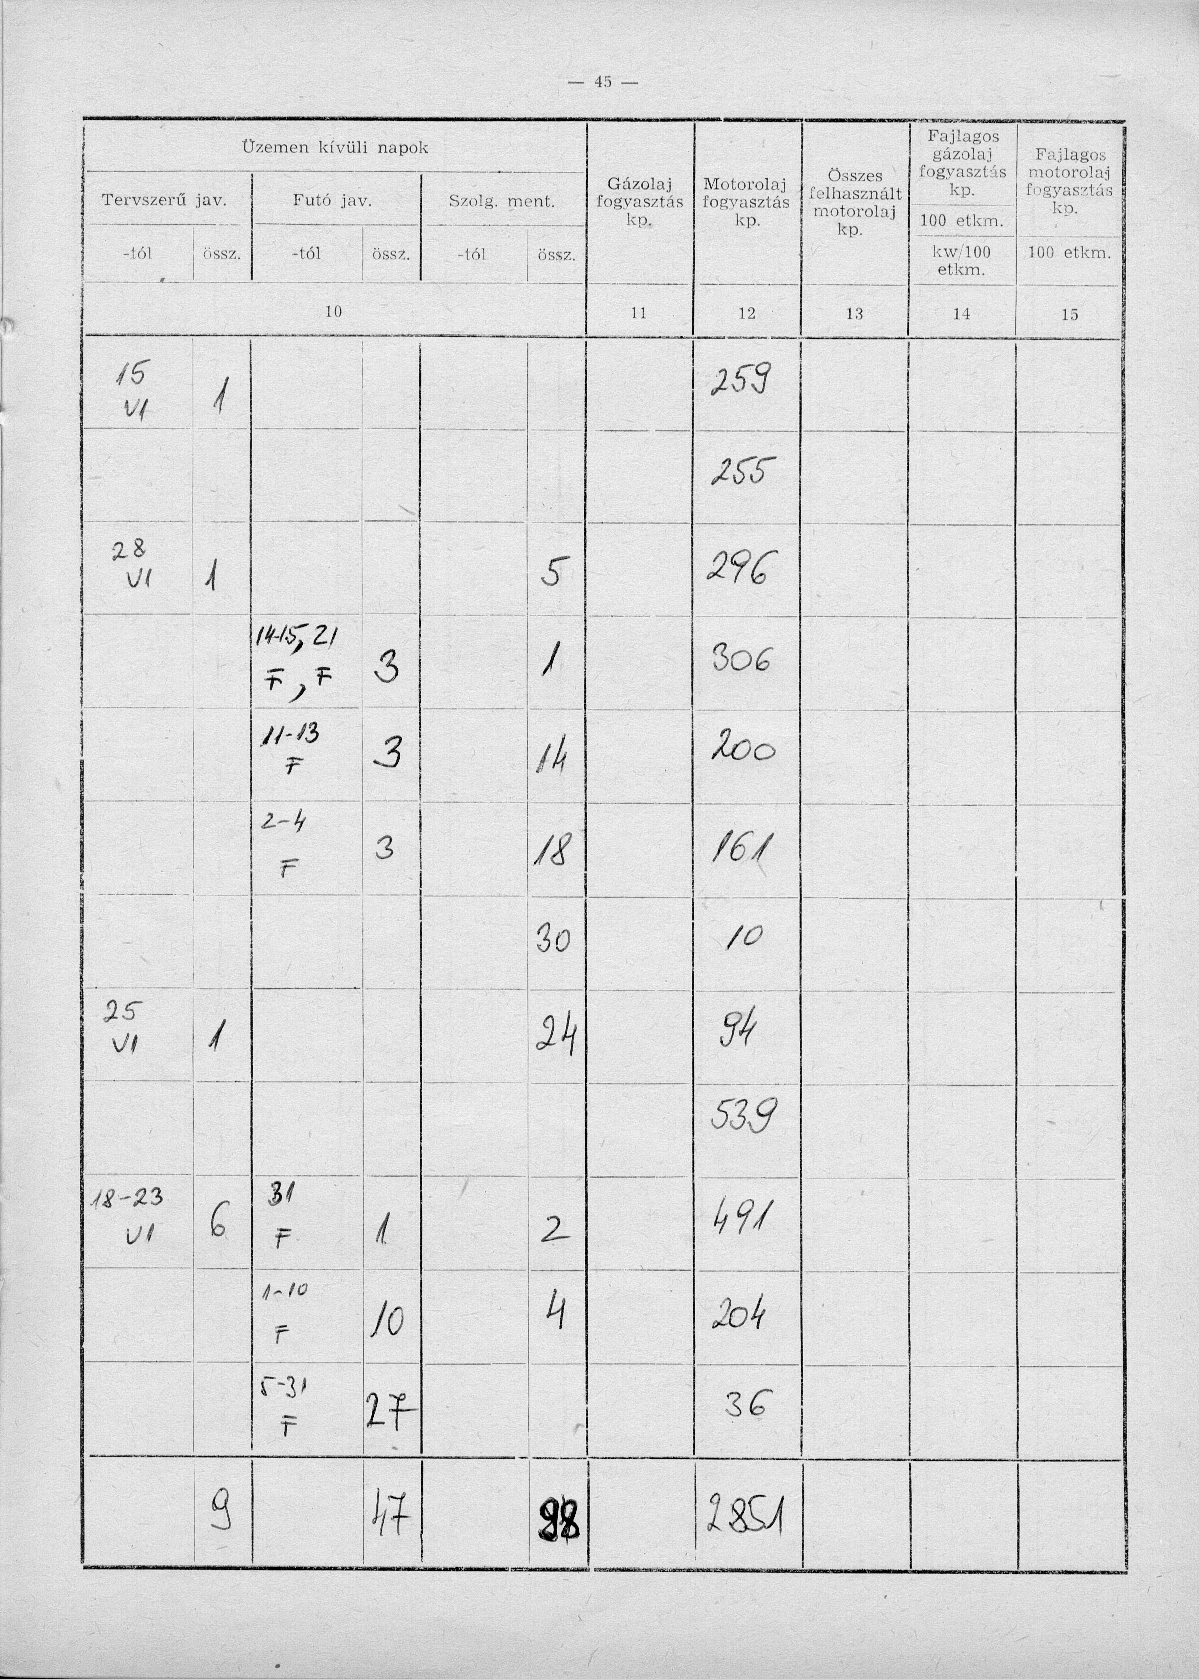 — 45 —
Üzemen kívüli napok
Tervszerű jav.
Futó jav.
Szolg. ment.
-tól
össz.
-tól
össz.
-tól
össz.
Gázolaj
fogyasztás
kp.
Motorolaj
fogyasztás
kp.
Összes
felhasznált
motorolaj
kp.
Fajlagos
gázolaj
fogyasztás
kp.
100 etkm.
kw/100
etkm.
Fajlagos
motorolaj
fogyasztás
kp.
100 etkm.
10 11 12 13 14 15
15
VI 1 259
255
28
VI 1 5 296
14-15, 21
F, F 3 1 306
11-13
F 3 14 200
2-4
F 3 18 161
30 10
25
VI 1 24 94
539
18-23 31
VI 6 F 1 2 491
1-10
F 10 4 204
5-31
F 27 36
9 47 98 2851